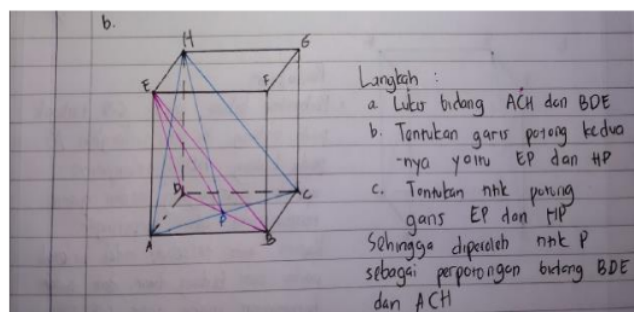 b.
H
G
E
F
Langkah :
a. Lukis bidang ACH dan BDE
b. Tentukan garis potong kedua
-nya yaitu EP dan HP
c. Tentukan titik potong
garis EP dan HP
D
C
P
Sehingga diperoleh titik P
A
B
sebagai perpotongan bidang BDE
dan ACH